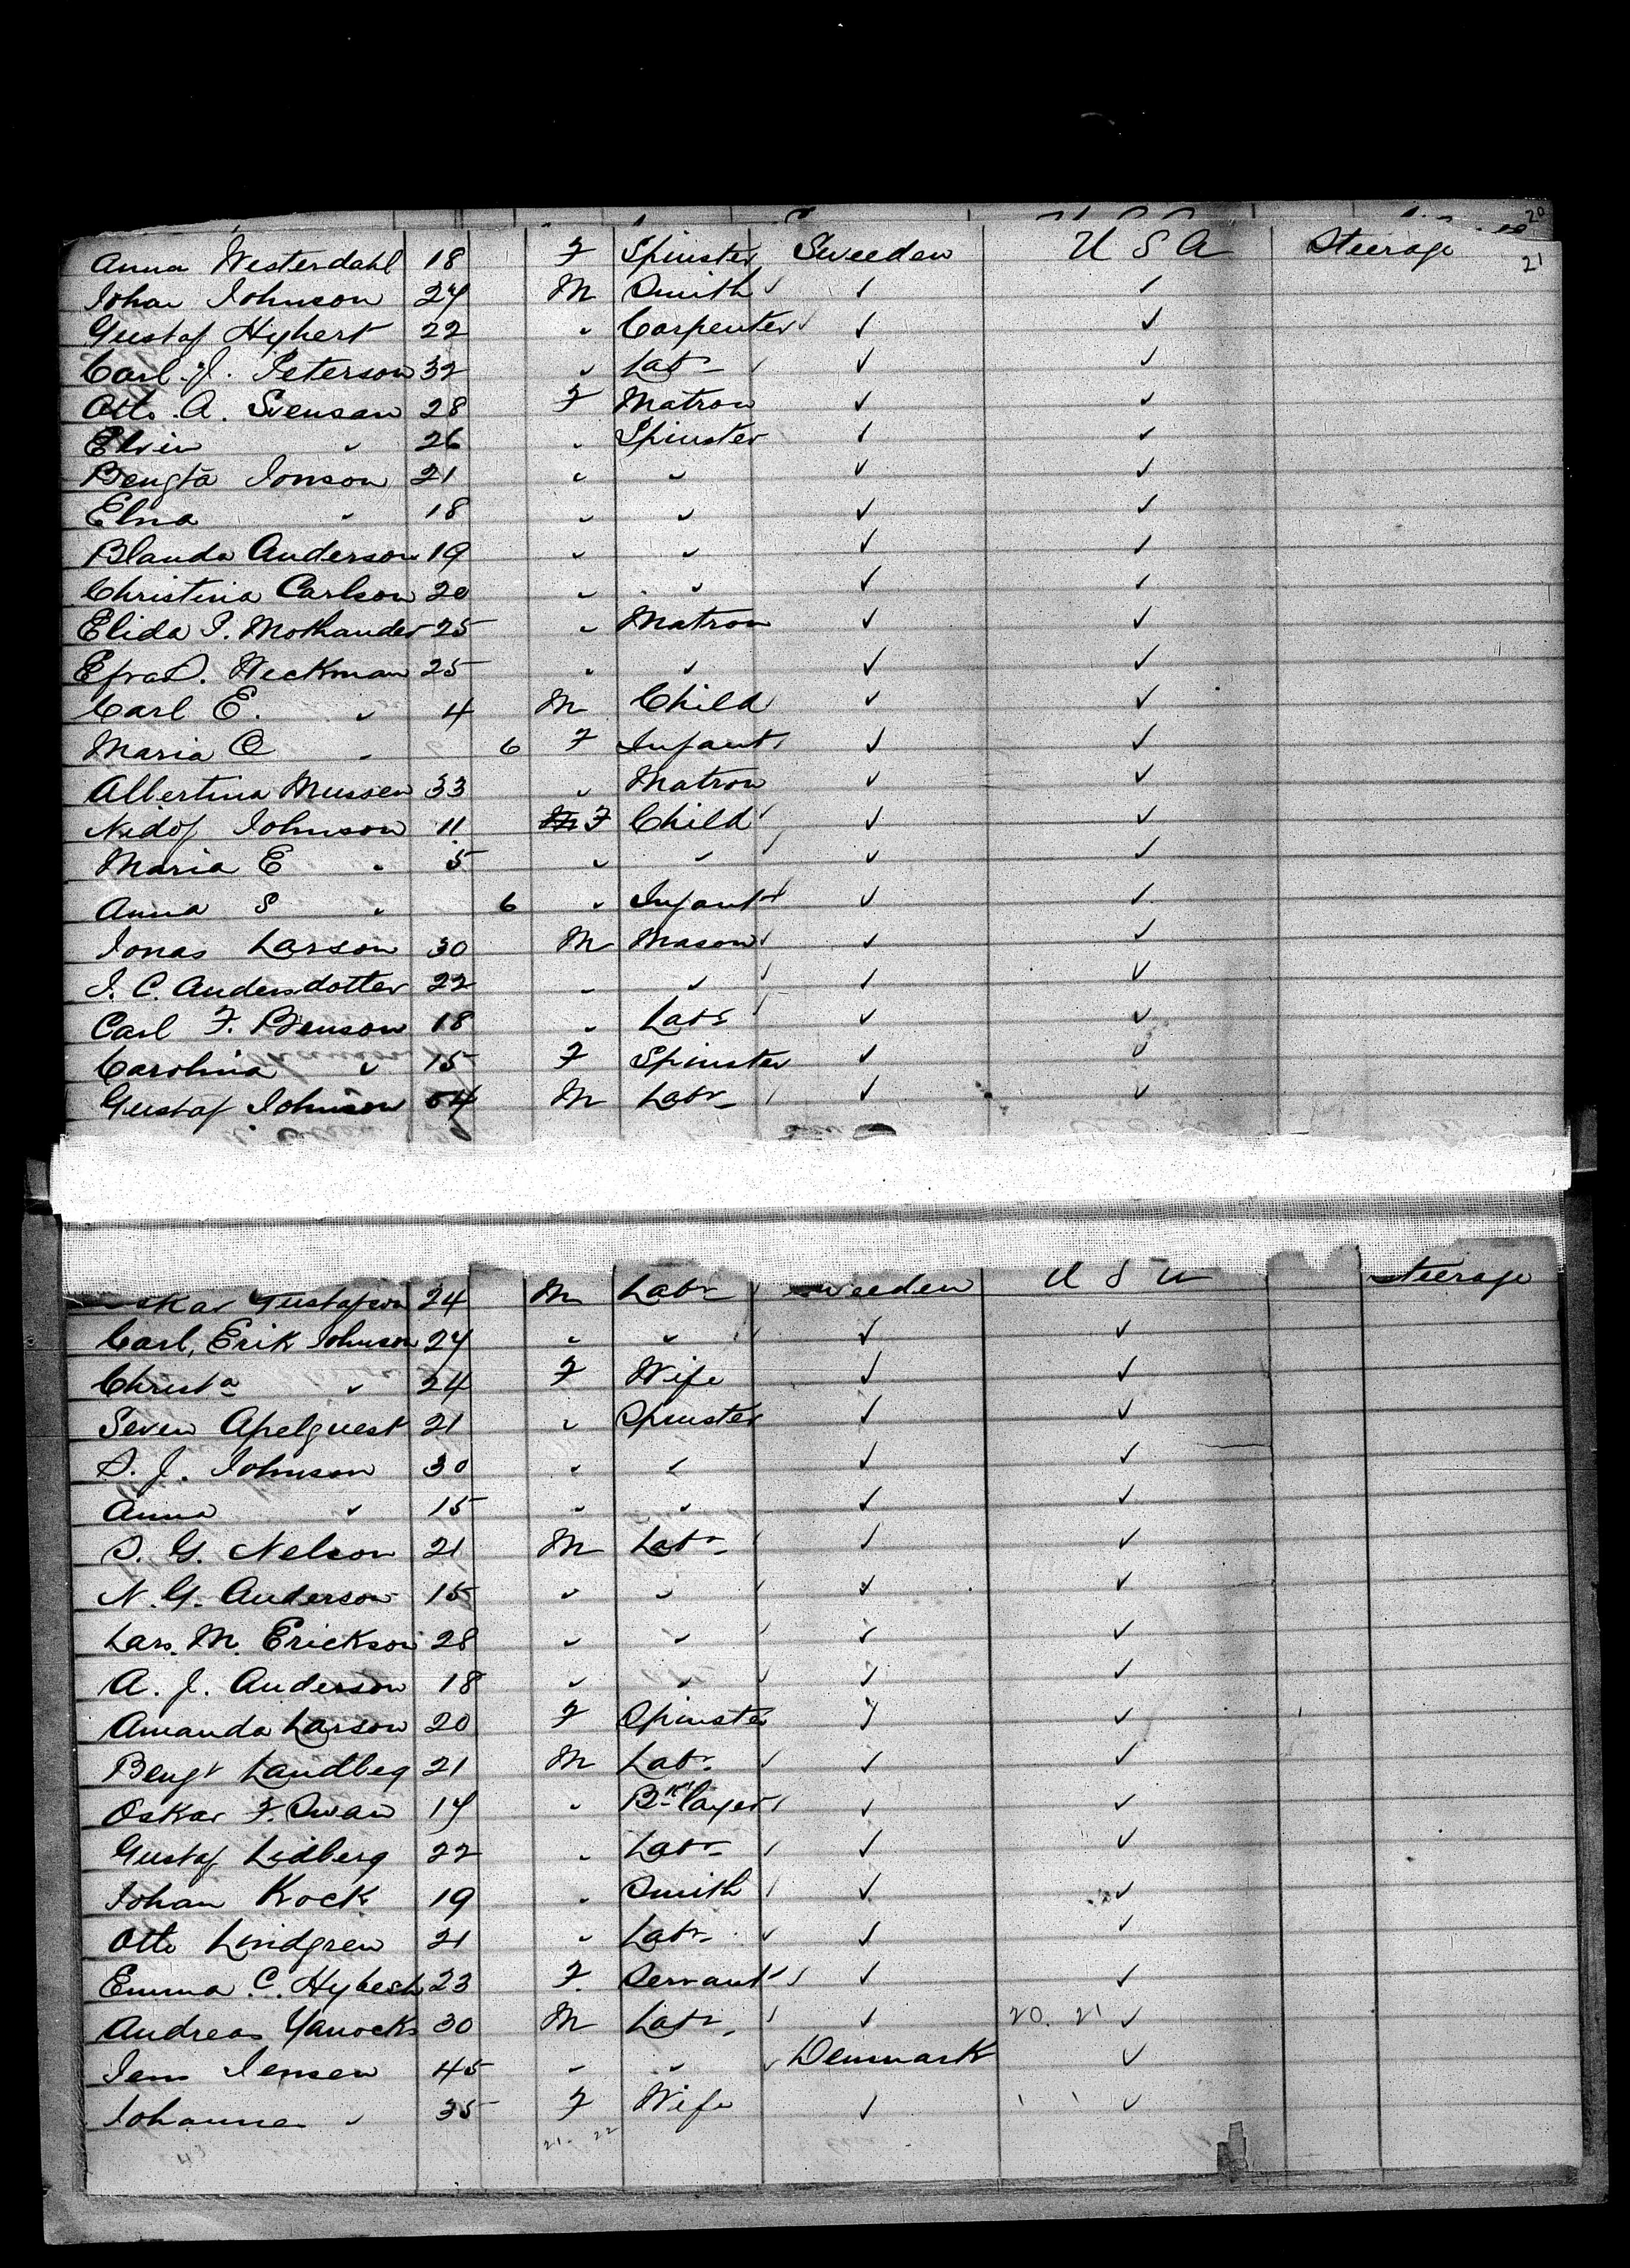 20
21
Anna Westerdahl 18 F Spinster Sweeden U S A Steerage
Johan Johnson 24 M Smith ✓ ✓
Gustaf Hybert 22 " Carpenter ✓ ✓
Carl J. Peterson 32 " Labr ✓ ✓
Otto A. Svensan 28 F Matron ✓ ✓
Elvin " 26 " Spinster ✓ ✓
Bengta Jonson 21 " " ✓ ✓
Elna " 18 " " ✓ ✓
Blanda Anderson 19 " " ✓ ✓
Christina Carlson 20 " " ✓ ✓
Elida J. Mothander 25 " Matron ✓ ✓
Efra S. Weckman 25 " " ✓ ✓
Carl E. " 4 M Child ✓ ✓
Maria O " 6 F Infant ✓ ✓
Albertina Mussen 33 " Matron ✓ ✓
Johnson 11 F Child ✓ ✓
Maria E " 5 " " ✓ ✓
Anna S " 6 " Infant ✓ ✓
Jonas Larson 30 M Mason ✓ ✓
J. C. Andersdotter 22 " " ✓ ✓
Carl F. Benson 18 " Labr ✓ ✓
Carolina " 15 F Spinster ✓ ✓
Gustaf Johnson 54 M Labr ✓ ✓
skar Gustafson 24 M Labr weeden U S A Steerage
Carl Erik Johnson 24 " " ✓ ✓
Christa " 24 F Wife ✓ ✓
Seven Apelquest 21 " Spinster ✓ ✓
S. J. Johnson 30 " " ✓ ✓
Anna " 15 " " ✓ ✓
S. G. Nelson 21 M Labr ✓ ✓
N. G. Anderson 15 " " ✓ ✓
Lars. M. Erickson 28 " " ✓ ✓
A. J. Anderson 18 " " ✓ ✓
Amanda Larson 20 F Spinster ✓ ✓
Bengt Landbeg 21 M Labr ✓ ✓
Oskar F. Swan 19 " Bklayer ✓ ✓
Gustaf Lidberg 22 " Labr ✓ ✓
Johan Kock 19 " Smith ✓ ✓
Otto Lindgren 21 " Labr ✓ ✓
Emma C. Hybesh 23 F. Servant ✓ ✓
Andreas Yanocks 30 M Labr ✓ 20. 21 ✓
Jens Jensen 45 " " Denmark ✓
Johanne " 35 F Wife ✓ ✓
21. 22